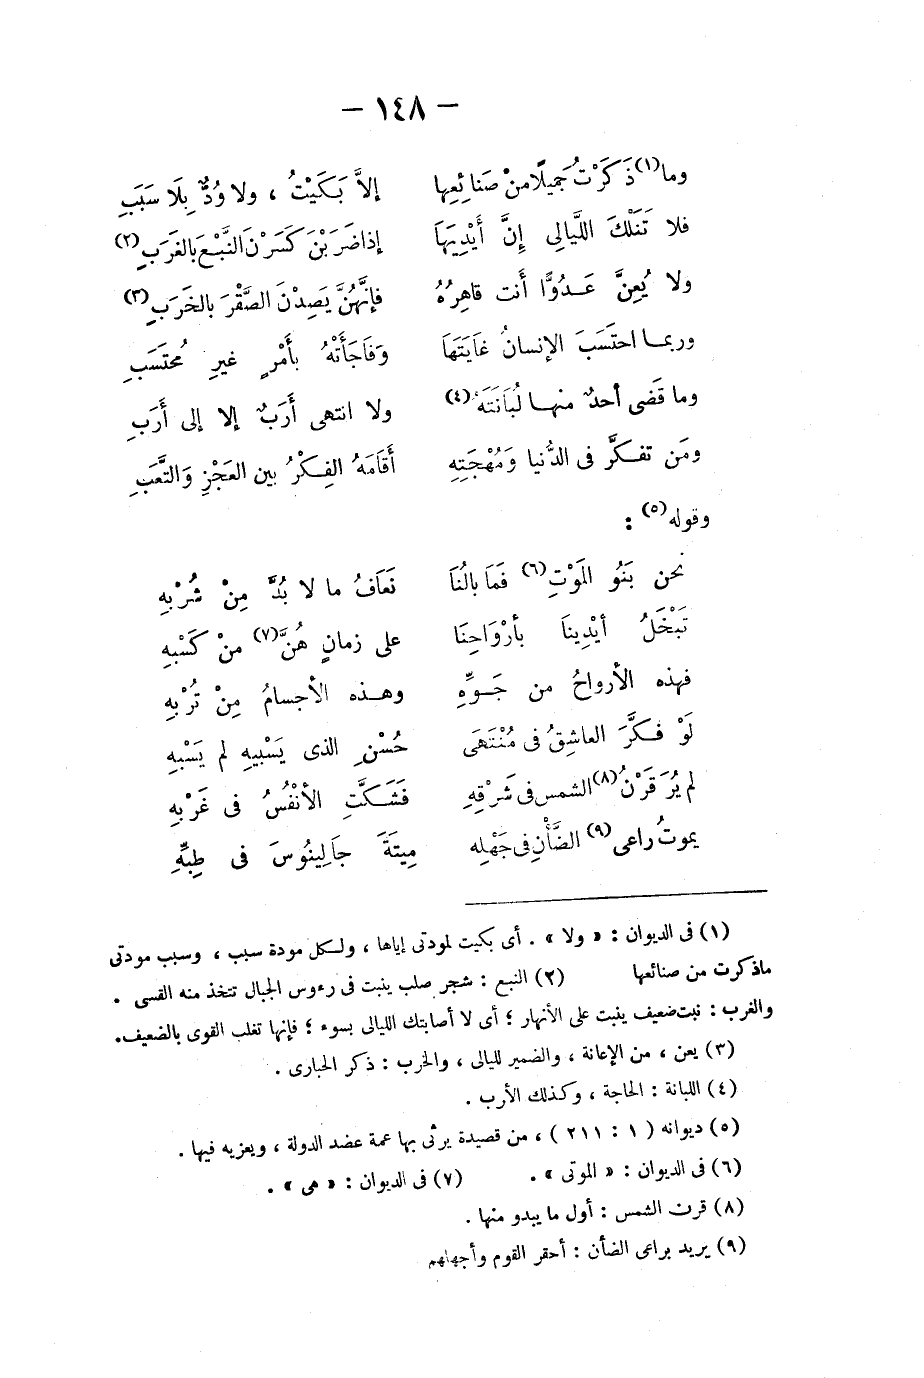 — ١٤٨ —
وما(١) ذَكَرْتُ جَمِيلًا مِنْ صَنَائِعِها إلاَّ بَكَيْتُ ، ولا وُدٌّ بِلَا سَبَبِ
فلا تَنَلْكَ اللَّيالِى إِنَّ أَيْدِيَهَا إذا ضَرَبْنَ كَسَرْنَ النَّبْعَ بالغَرَبِ(٢)
ولا يُعِنَّ عَدُوًّا أَنت قاهِرُهُ فإنَّهُنَّ يَصِدْنَ الصَّقْرَ بالخَرَبِ(٣)
وربما احتَسَبَ الإنسانُ غايَتَهَا وَفَاجَأَتْهُ بأَمْرٍ غيرِ مُحتَسَبِ
وما قَضى أحدٌ منها لُبَانَتَهُ(٤) ولا انتهى أَرَبٌ إلا إلى أَرَبِ
ومَن تفكَّر فى الدُّنيا وَمُهْجَتِهِ أَقَامَهُ الفِكْرُ بين العَجْزِ وَالتَّعَبِ
وقوله(٥) :
نحن بَنُو المَوْتِ(٦) فَمَا بالُنَا نَعَافُ ما لا بُدَّ مِنْ شُرْبِهِ
تَبْخَلُ أيْدِينَا بأرْوَاحِنَا على زمانٍ هُنَّ(٧) مِنْ كَسْبِهِ
فهذه الأرواحُ من جَوِّهِ وهذه الأجسامُ مِنْ تُرْبِهِ
لَوْ فكَّرَ العاشِقُ فى مُنْتَهَى حُسْنِ الذى يَسْبِيهِ لم يَسْبِهِ
لم يُرَ قَرْنُ(٨) الشمس فى شَرْقِهِ فَشَكَّتِ الأَنْفُسُ فى غَرْبِهِ
يموتُ راعى(٩) الضَّأْنِ فى جَهْلِه مِيتَةَ جَالِينُوسَ فى طِبِّهِ
(١) فى الديوان : « ولا » . أى بكيت لمودتى إياها ، ولكل مودة سبب ، وسبب مودتى
ماذكرت من صنائعها (٢) النبع : شجر صلب ينبت فى رءوس الجبال تتخذ منه القسى .
والغرب : نبت ضعيف ينبت على الأنهار ؛ أى لا أصابتك الليالى بسوء ؛ فإنها تغلب القوى بالضعيف.
(٣) يعن ، من الإعانة ، والضمير لليالى ، والخرب : ذكر الحبارى .
(٤) اللبانة : الحاجة ، وكذلك الأرب .
(٥) ديوانه ( ١ : ٢١١ ) ، من قصيدة يرثى بها عمة عضد الدولة ، ويعزيه فيها .
(٦) فى الديوان : « الموتى » . (٧) فى الديوان : « هى » .
(٨) قرن الشمس : أول ما يبدو منها .
(٩) يريد براعى الضأن : أحقر القوم وأجهلهم